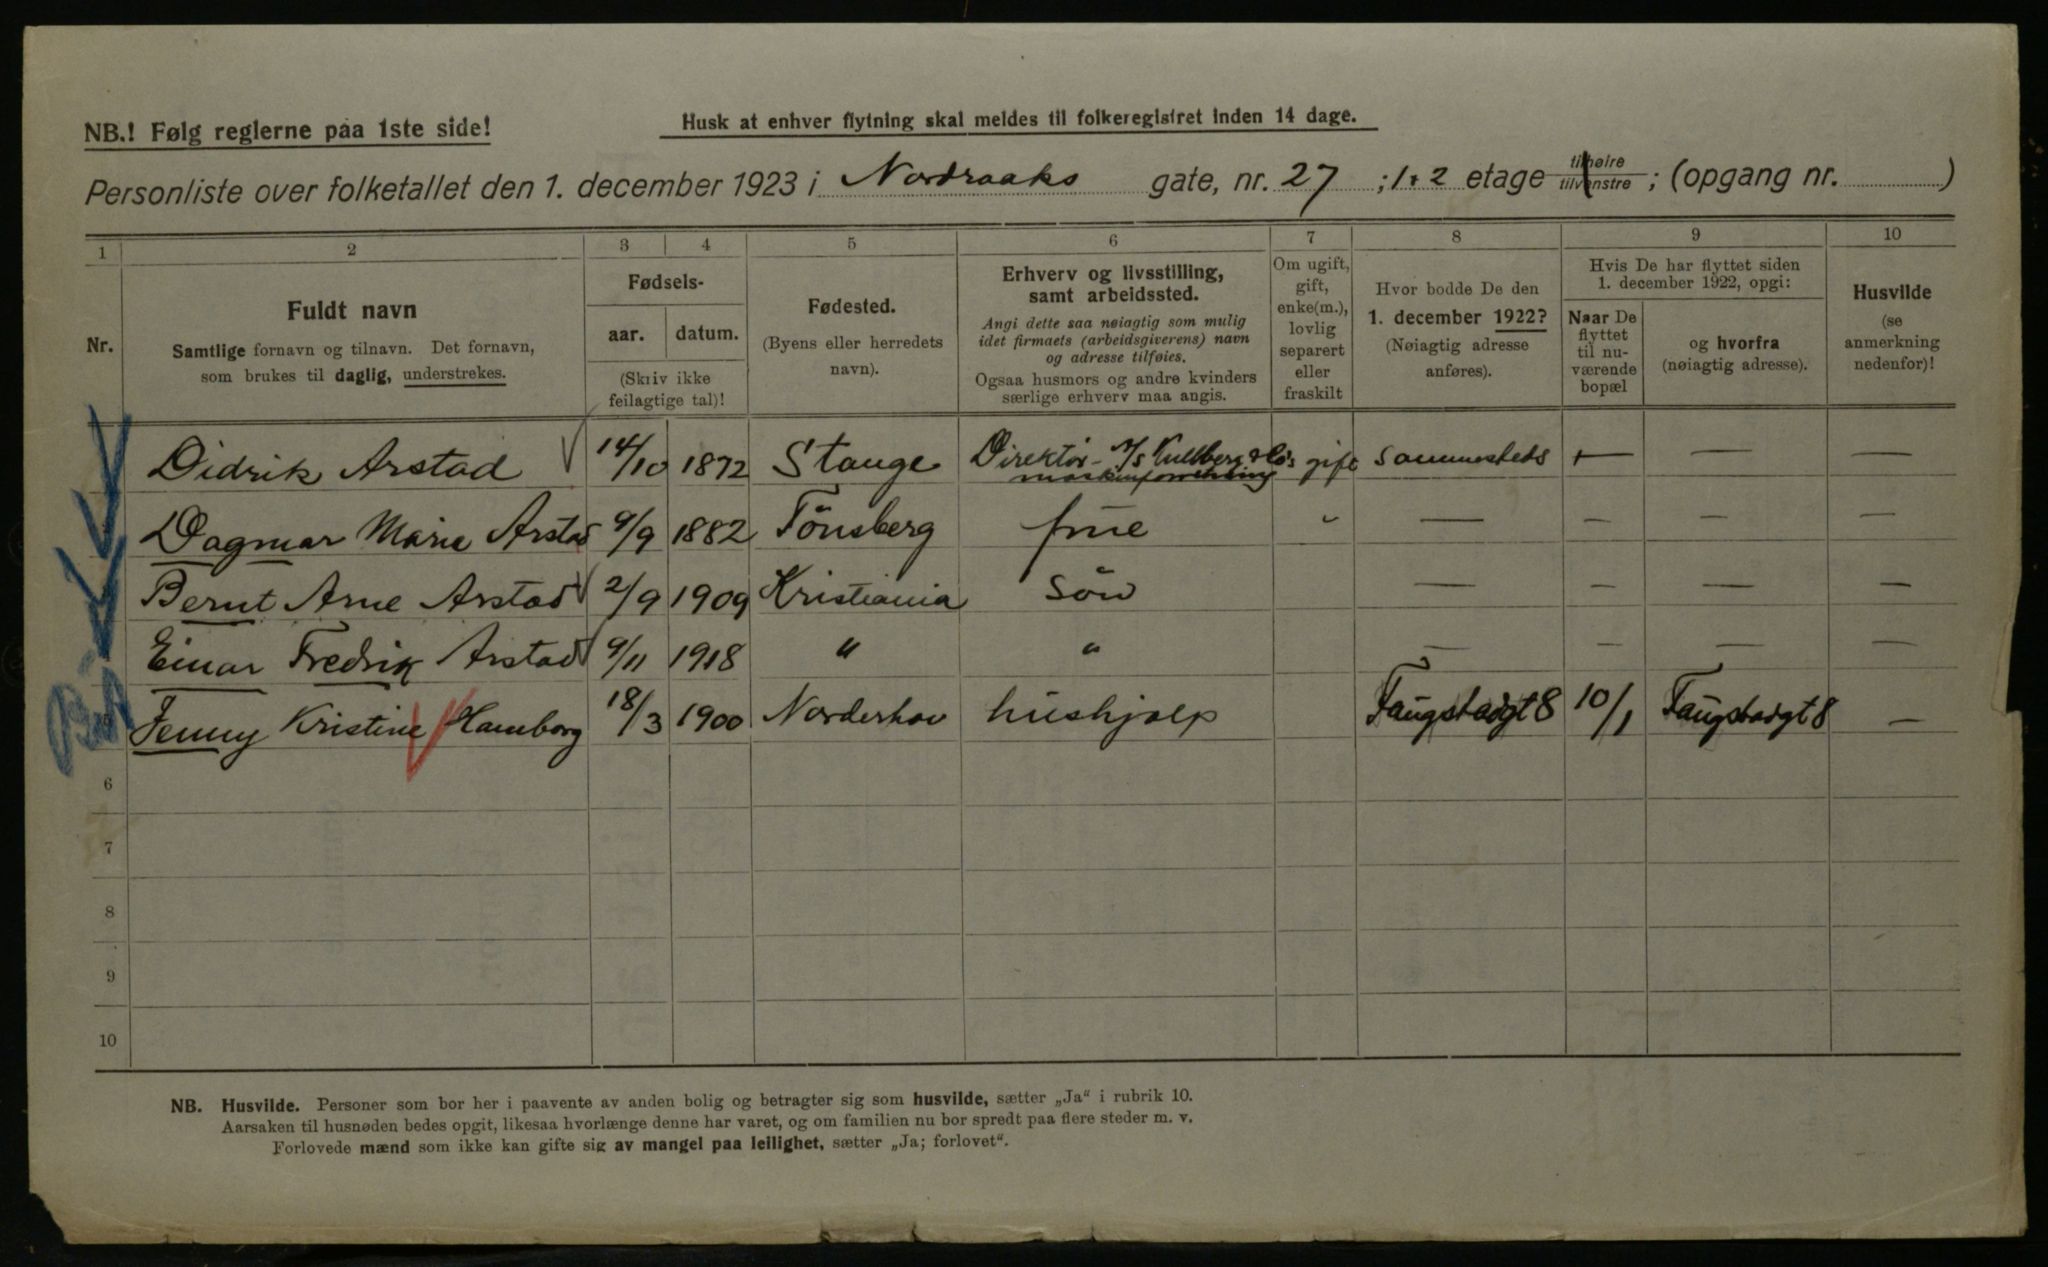 NB.! Følg reglerne paa 1ste side!
Husk at enhver flytning skal meldes til folkeregistret inden 14 dage.
Personliste over folketallet den 1. december 1923 i Nordraaks gate, nr. 27; 1+2 etage tilhøire tilvenstre; (opgang nr. )
1 2 3 4 5 6 7 8 9 10
Nr.
Fuldt navn
Samtlige fornavn og tilnavn. Det fornavn,
som brukes til daglig, understrekes.
Fødsels-
aar. datum.
(Skriv ikke
feilagtige tal)!
Fødested.
(Byens eller herredets
navn).
Erhverv og livsstilling,
samt arbeidssted.
Angi dette saa nøiagtig som mulig
idet firmaets (arbeidsgiverens) navn
og adresse tilføies.
Ogsaa husmors og andre kvinders
særlige erhverv maa angis.
Om ugift,
gift,
enke(m.),
lovlig
separert
eller
fraskilt
Hvor bodde De den
1. december 1922?
(Nøiagtig adresse
anføres).
Hvis De har flyttet siden
1. december 1922, opgi:
Naar De
flyttet
til nu-
værende
bopæl
og hvorfra
(nøiagtig adresse).
Husvilde
(se
anmerkning
nedenfor)!
Didrik Arstad 14/10 1872 Stange Direktör A/S Kullberg & Co's gift sammesteds — — —
maskinforretning
Dagmar Marie Arstad 9/9 1882 Tönsberg frue " — — — —
Bernt Arne Arstad 2/9 1909 Kristiania sön — — — —
Einar Fredrik Arstad 9/11 1918 " " — — — —
5 Jenny Kristine Hamborg 18/3 1900 Norderhov hushjælp Faugstadgt 8 10/1 Faugstadgt 8 —
6
7
8
9
10
NB. Husvilde. Personer som bor her i paavente av anden bolig og betragter sig som husvilde, sætter „Ja“ i rubrik 10.
Aarsaken til husnøden bedes opgit, likesaa hvorlænge denne har varet, og om familien nu bor spredt paa flere steder m. v.
Forlovede mænd som ikke kan gifte sig av mangel paa leilighet, sætter „Ja; forlovet“.